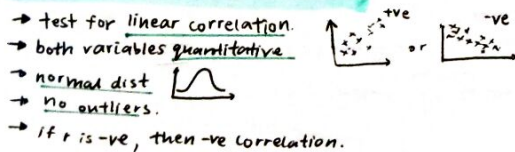 → test for linear correlation.
+ve or -ve
→ both variables quantitative
→ normal dist
→ no outliers.
→ if r is -ve, then -ve correlation.